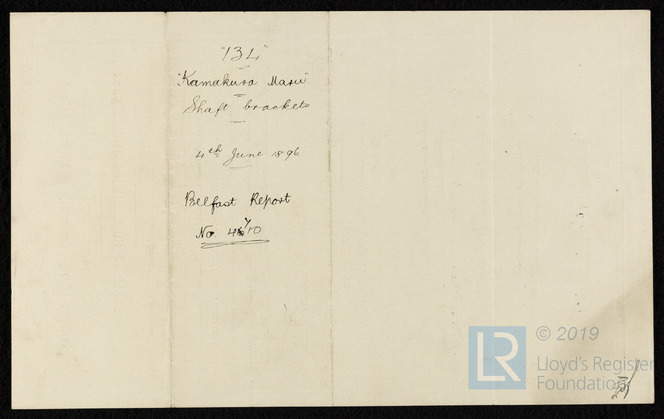 "134"
"Kamakura Maru"
Shaft brackets
4th June 896
Belfast Report
No.
LR
© 2019
Lloyd's Register
Foundation